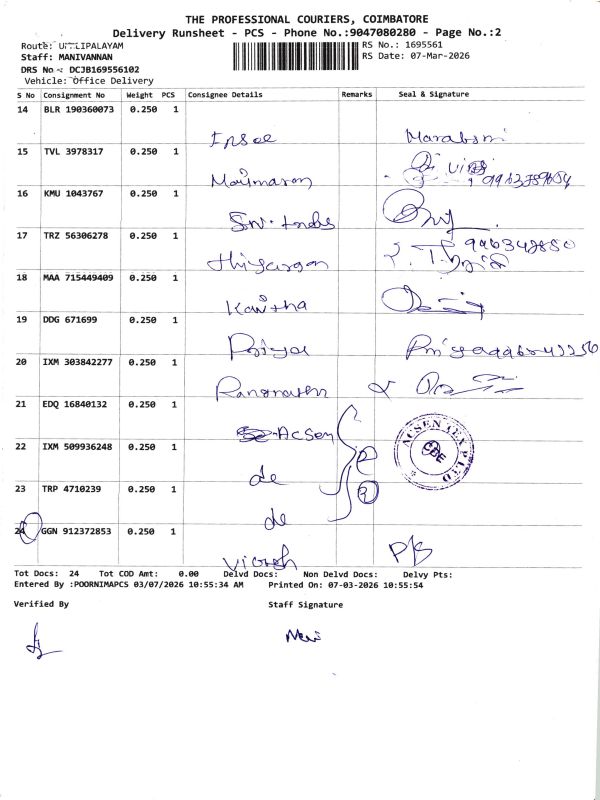 THE PROFESSIONAL COURIERS, COIMBATORE
Delivery Runsheet - PCS - Phone No.:9047080280 - Page No.:2
Route: UPPILIPALAYAM
RS No.: 1695561
Staff: MANIVANNAN
RS Date: 07-Mar-2026
DRS No : DCJB169556102
Vehicle: Office Delivery
S No Consignment No Weight PCS Consignee Details Remarks Seal & Signature
14 BLR 190360073 0.250 1
15 TVL 3978317 0.250 1
Manimaran
16 KMU 1043767 0.250 1
17 TRZ 56306278 0.250 1
Thiyagaran
18 MAA 715449409 0.250 1
Kavitha
19 DDG 671699 0.250 1
Priya
20 IXM 303842277 0.250 1
Ranganathan
21 EDQ 16840132 0.250 1
Acsen
ACSEN TEX P LTD
CBE
22 IXM 509936248 0.250 1
de
23 TRP 4710239 0.250 1
de
24 GGN 912372853 0.250 1
P/S
Tot Docs: 24 Tot COD Amt: 0.00 Delvd Docs: Non Delvd Docs: Delvy Pts:
Entered By :POORNIMAPCS 03/07/2026 10:55:34 AM Printed On: 07-03-2026 10:55:54
Verified By Staff Signature
Mani